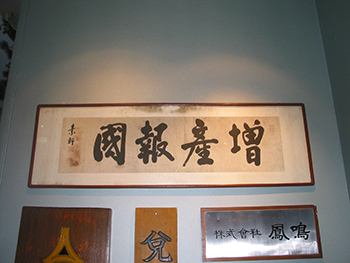 增產報國
素軒
兌
株式會社 鳳鳴